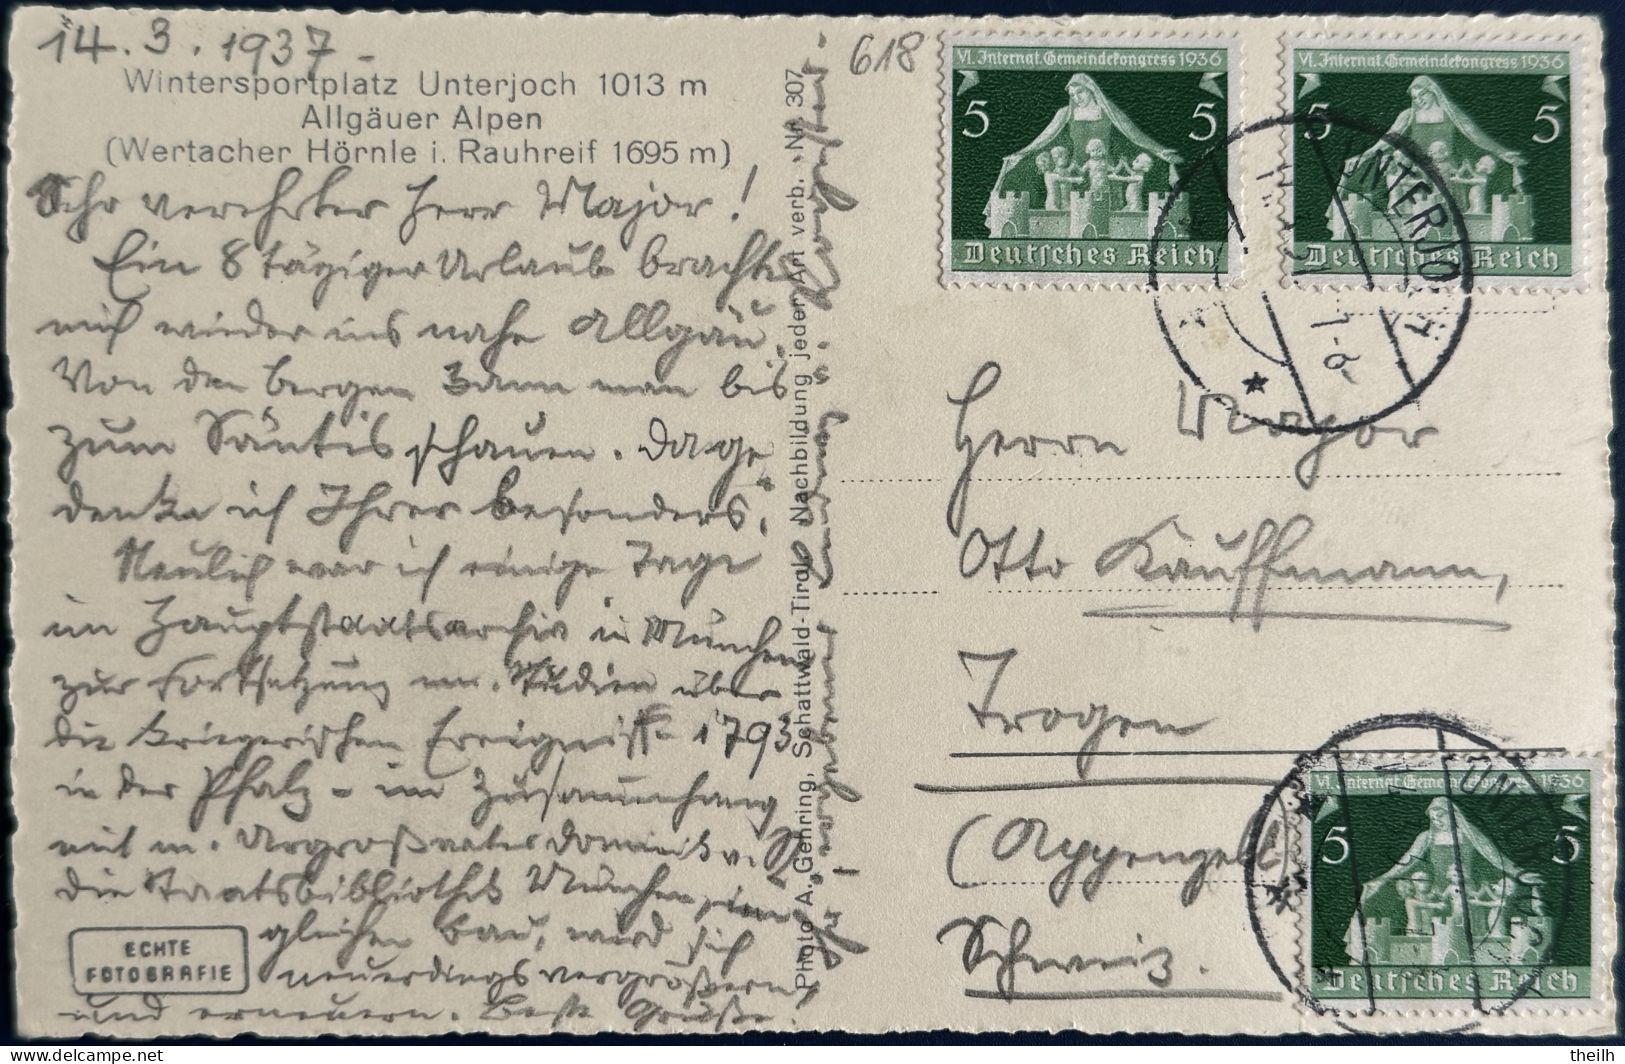 14.3.1937
618
Wintersportplatz Unterjoch 1013 m
Allgäuer Alpen
(Wertacher Hörnle i. Rauhreif 1695 m)
Sehr verehrter Herr Major!
Ein 8 tägiger Urlaub brachte
mich wieder ins nahe Allgäu.
Von den Bergen kann man bis
zum Säntis schauen. Da ge
denke ich Ihrer besonders.
Neulich war ich einige Tage
im Hauptstaatsarchiv in München
zur Fortsetzung m. Studien über
die kriegerischen Ereignisse 1793
in der Pfalz - im Zusammenhang
mit m. Urgroßvater Dominik v.
Die Staatsbibliothek München, im
gleichen Bau, wird sich
neuerdings vergrößern
und erneuern. Beste Grüße.
ECHTE
FOTOGRAFIE
Photo A. Gehring, Schattwald-Tirol. Nachbildung jeder Art verb. Nr. 307
VI. Internat. Gemeindekongress 1936
5 5
Deutsches Reich
VI. Internat. Gemeindekongress 1936
5 5
Deutsches Reich
UNTERJOCH
Herrn Major
Otto Kauffmann,
Trogen
(Appenzell)
Schweiz.
VI. Internat. Gemeindekongress 1936
5 5
Deutsches Reich
UNTERJOCH
theilh